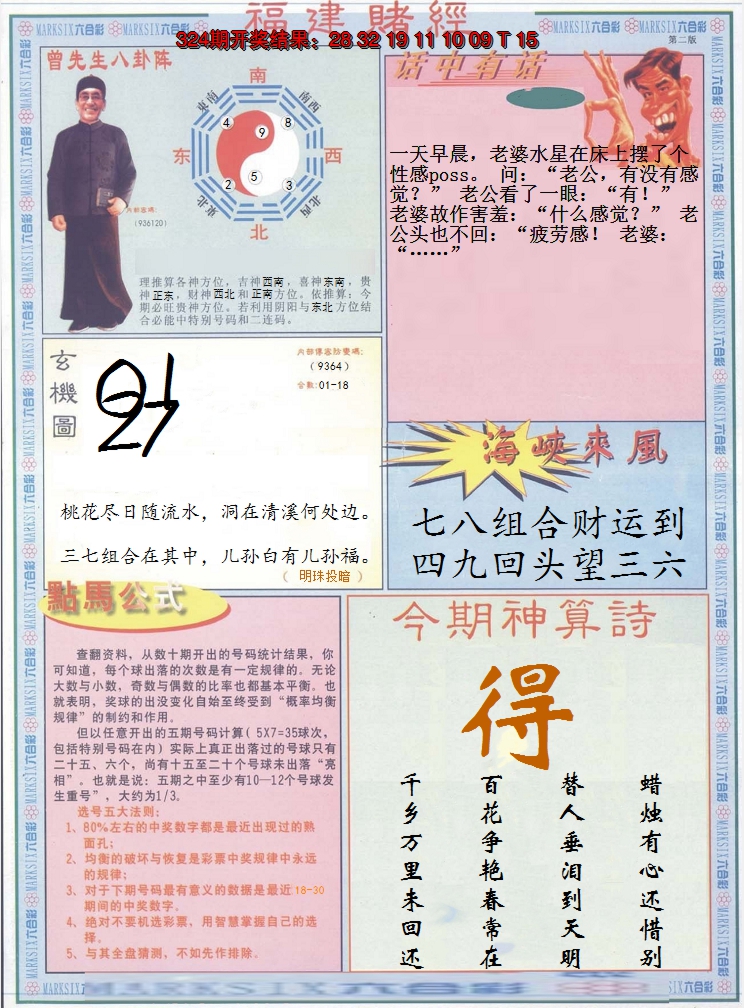 福建賭經
324期开奖结果：28 32 19 11 10 09 T 15
MARKSIX六合彩
第二版
曾先生八卦阵
南
东南
南西
东
西
东北
北西
北
4
9
8
2
5
3
内部密碼：
（936120）
理推算各神方位，吉神西南，喜神东南，贵
神正东，财神西北和正南方位。依推算：今
期必旺贵神方位。若利用阴阳与东北方位结
合必能中特别号码和二连码。
话中有话
一天早晨，老婆水星在床上摆了个
性感poss。 问：“老公，有没有感
觉？” 老公看了一眼：“有！”
老婆故作害羞：“什么感觉？” 老
公头也不回：“疲劳感！ 老婆：
“……”
玄機圖
内部傳容防變碼：
（9364）
合数：01-18
桃花尽日随流水，洞在清溪何处边。
三七组合在其中，儿孙自有儿孙福。
（ 明珠投暗 ）
海峽來風
七八组合财运到
四九回头望三六
點馬公式
查翻资料，从数十期开出的号码统计结果，你
可知道，每个球出落的次数是有一定规律的。无论
大数与小数，奇数与偶数的比率也都基本平衡。也
就表明，奖球的出没变化自始至终受到“概率均衡
规律”的制约和作用。
但以任意开出的五期号码计算（5X7=35球次，
包括特别号码在内）实际上真正出落过的号球只有
二十五、六个，尚有十五至二十个号球未出落“亮
相”。也就是说：五期之中至少有10—12个号球发
生重号”，大约为1/3。
选号五大法则：
1、80%左右的中奖数字都是最近出现过的熟
面孔；
2、均衡的破坏与恢复是彩票中奖规律中永远
的规律；
3、对于下期号码最有意义的数据是最近18-30
期间的中奖数字。
4、绝对不要机选彩票，用智慧掌握自己的选
择。
5、与其全盘猜测，不如先作排除。
今期神算詩
得
蜡烛有心还惜别
替人垂泪到天明
百花争艳春常在
千乡万里未回还